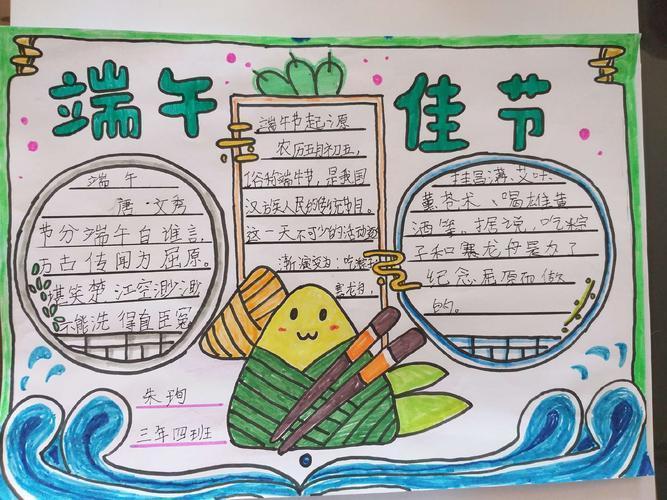 端午佳节
端午
唐·文秀
节分端午自谁言,
万古传闻为屈原。
堪笑楚江空渺渺
不能洗得直臣冤
端午节起源
农历五月初五,
俗称端午节,是我国
汉族人民的传统节日。
这一天不可少的活动逐
渐演变为:吃粽子
赛龙舟,
挂昌蒲、艾叶、
薰苍术、喝雄黄
酒等。据说,吃粽
子和赛龙舟是为了
纪念屈原而做
的。
朱珣
三年四班